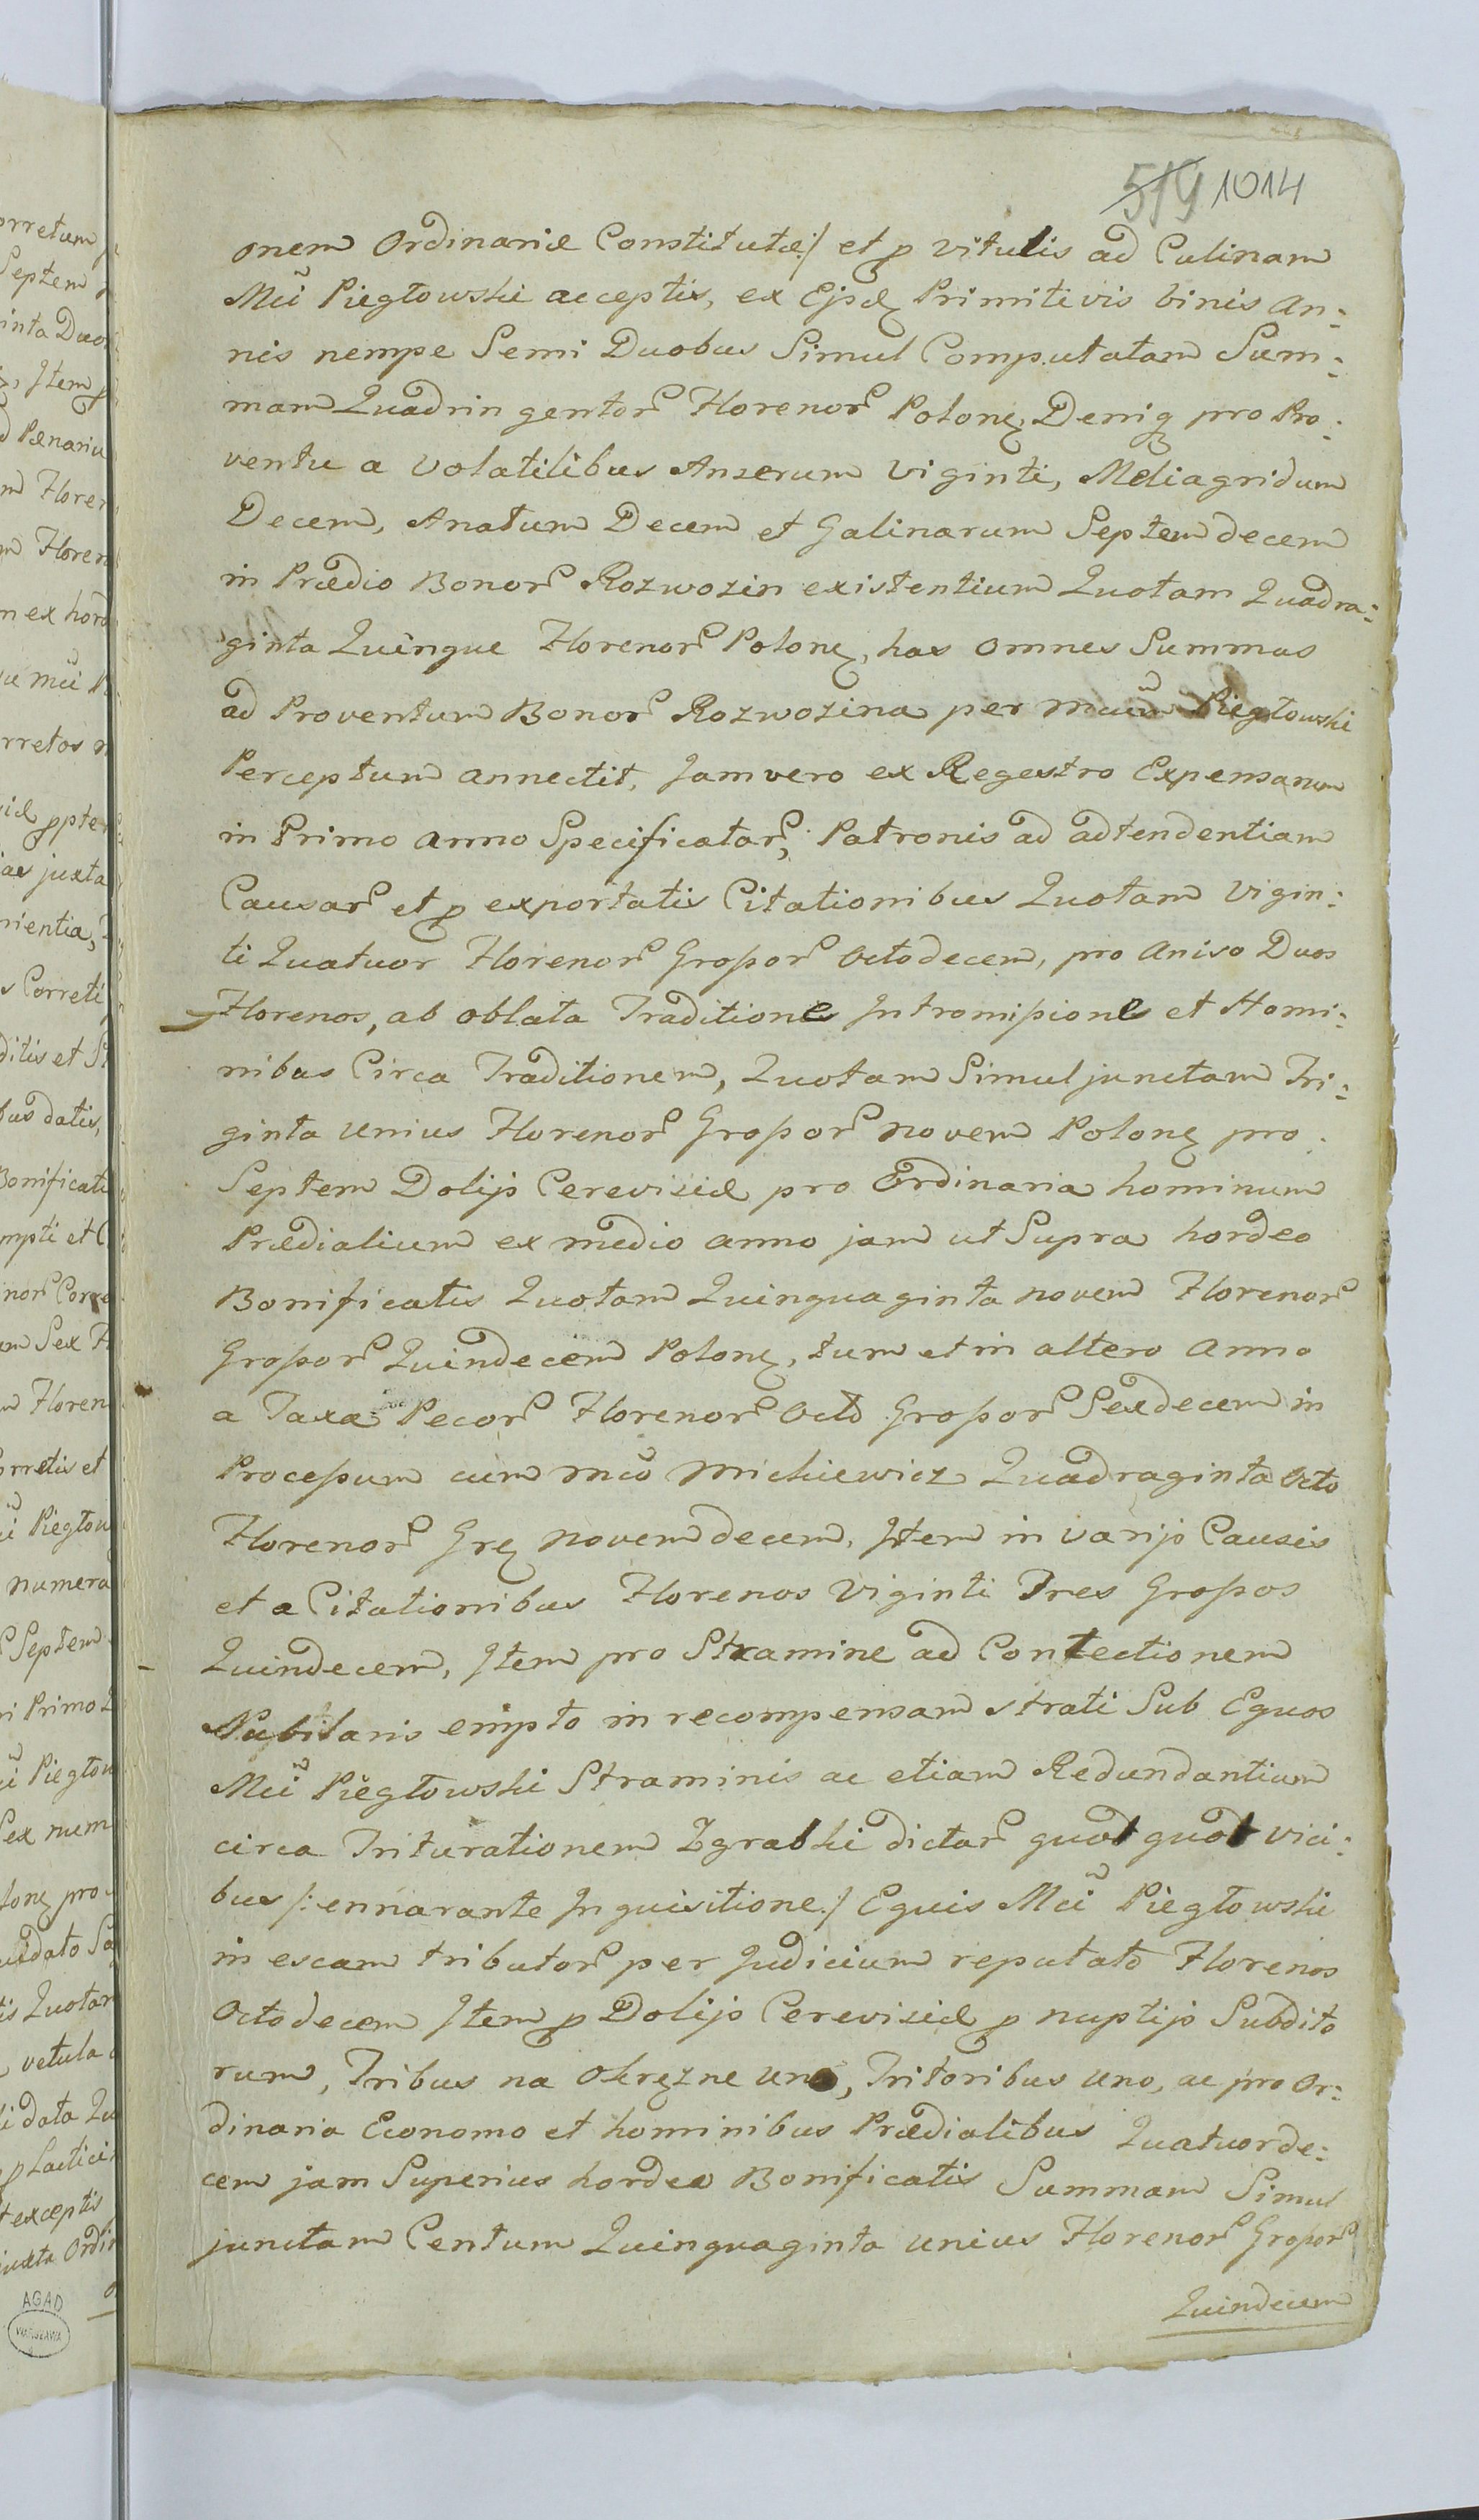 519 1014
onem Ordinariæ Constitutæ:/ et p vitulis ad Culinam
Mci Piegłowski acceptis, ex Ejpdę Primitivis binis An:
nis nempe Semi Duobus Simul Computatam Sum:
mam Quadringentor Florenor Polonę, Deniq pro Pro:
ventu a Volatilibus Anserum Viginti, Meliagridum
Decem, Anatum Decem et Galinarum Septemdecem
in Prædio Bonor Rozwozin existentium Quotam Quadra:
ginta Quinque Florenor Polonę, has omnes Summas
ad Proventum Bonor Rozwozina per Mcum Piegłowski
Perceptum annectit, Jam vero ex Regestro Expensarum
in Primo anno Specificatar, Patronis ad adtendentiam
Causar et p exportatis Citationibus Quotam Vigin:
ti Quatuor Florenor Gropor Octodecem, pro Aniso Duos
Florenos, ab oblata Traditione Intromipione et Homi:
nibus Circa Traditionem, Quotam Simul junctam Tri:
ginta unius Florenor Gropor novem Polonę pro
Septem Dolijs Cerevisiæ pro Ordinaria hominum
Prædialium ex medio anno jam ut Supra hordeo
Bonificatis Quotam Quinquaginta novem Florenor
Gropor Quindecem Polonę, tum et in altero Anno
a Taxa Pecor Florenor Octo Gropor Sexdecem in
Procepum cum Mco Mickiewicz Quadraginta Octo
Florenor Grę novemdecem, Item in varijs Causis
et a Citationibus Florenos Viginti Tres Gropos
Quindecem, Item pro Stramine ad Contectionem
Nubilaris empto in recompensam strati Sub Equos
Mci Piegłowski Straminis ac etiam Redundantium
circa Triturationem Zgrabki dictar quot quot vici:
bus /:ennarante Inquisitione:/ Equis Mci Piegłowski
in escam tributor per Judicium reputato Florenos
Octodecem Item p Dolijs Cerevisiæ p nuptijs Subdito
rum, Tribus na Okrężne uno, Tritoribus uno, ac pro Or:
dinaria Economo et hominibus Prædialibus Quatuorde:
cem jam Superius hordeo Bonificatis Summam Simul
junctam Centum Quinquaginta unius Florenor Gropor
Quindecem
AGAD
WARSZAWA